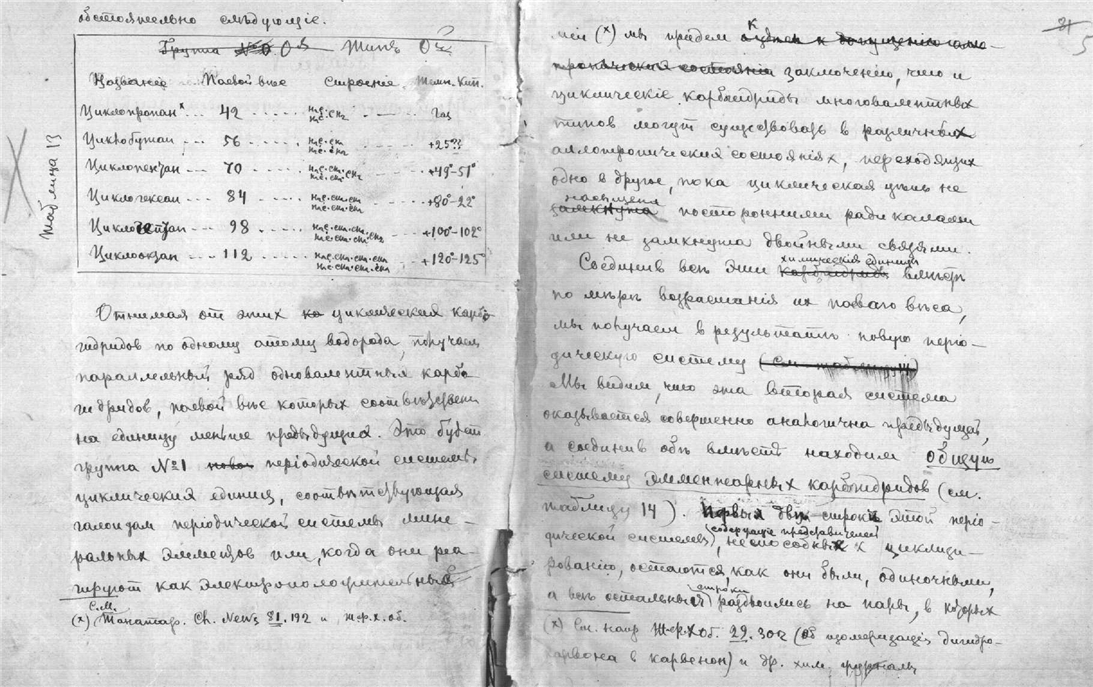 обстоятельно слѣдующіе.
Группа № 0 0ª Типъ 0ª
Названіе Паевой вѣс Строеніе. Темп. Кип.
Циклопропан ˣ ... 42 ..... H₂C·CH₂ ..... Газ
Циклобутан ... 56 .....  +25°??
Циклопентан ... 70 .....  +49°-51°
Циклогексан ... 84 .....  +80°-82°
Циклогептан ... 98 .....  +100°-102°
Циклооктан ... 112 .....  +120°-125°
Таблица 13
Отнимая от этих циклическия карбо-
гидридов по одному атому водорода, получаем
параллельный ряд одновалентных карбо-
гидридов, паевой вѣс которых соотвѣтственно
на единицу меньше предыдущих. Это будет
группа №1 новой періодической системы
циклическия единиц, соотвѣтствующая
галоидам періодической системы мине-
ральных элементов или, когда они реа-
гируют как электроположительныя
С.М.
(x) Танатар. Ch. News 81. 192 и ж.р.х.об.
31
5
ней (x) мы придем к
заключенію, что и
циклическіе карбогидриды многовалентных
типов могут существовать в различных
аллотропических состояніях, переходящих
одно в другое, пока циклическая цѣпь не
насыщена
замкнута посторонними радикалами
или не замкнута двойными связями.
химическія единицы
Соединив всѣ эти карбогидриды вмѣстѣ
по мѣрѣ возрастанія их паеваго вѣса,
мы получаем в результатѣ новую періо-
дическую систему (см. таблицу)
Мы видим, что эта вторая система
оказывается совершенно аналогична предыдущей,
а соединив обѣ вмѣстѣ находим общую
систему элементарных карбогидридов (см.
таблицу 14). Первыя двѣ строки этой періо-
(содержащіе представителей
дической системы), неспособных к циклизи-
рованію, остаются, как они были, одиночными,
строки
а всѣ остальныя раздвоились на пары, в которых
(x) См. напр Ж.Р.Х.Об. 29. 302 (об изомеризаціи дигидро-
карвона в карвенон) и др. хим. журналы